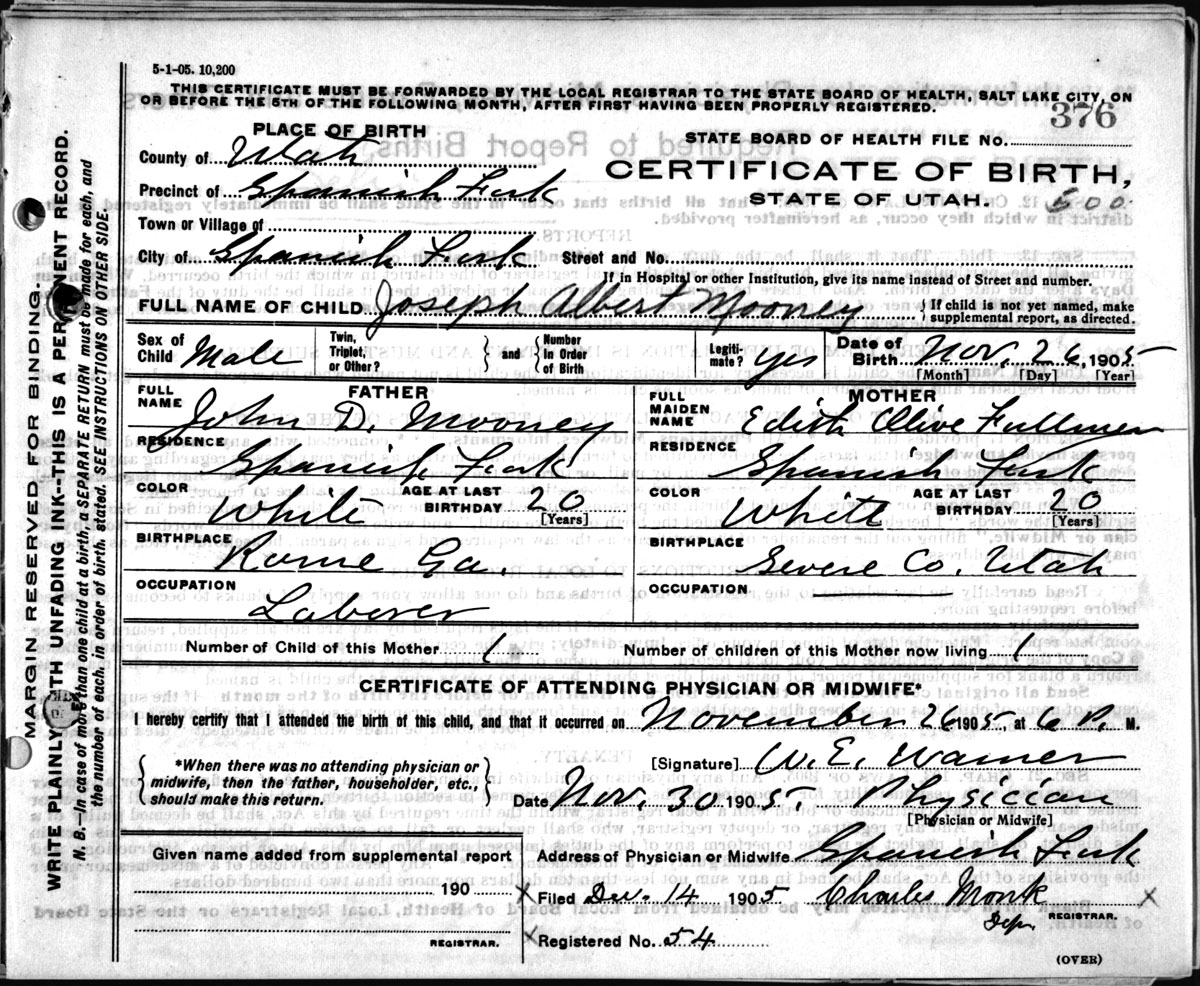 5-1-05. 10,200
THIS CERTIFICATE MUST BE FORWARDED BY THE LOCAL REGISTRAR TO THE STATE BOARD OF HEALTH, SALT LAKE CITY, ON
OR BEFORE THE 5TH OF THE FOLLOWING MONTH, AFTER FIRST HAVING BEEN PROPERLY REGISTERED.
376
PLACE OF BIRTH
STATE BOARD OF HEALTH FILE NO.
County of Utah
CERTIFICATE OF BIRTH,
Precinct of Spanish Fork
STATE OF UTAH. 500
Town or Village of
City of Spanish Fork Street and No.
If in Hospital or other Institution, give its name instead of Street and number.
FULL NAME OF CHILD Joseph Albert Mooney { If child is not yet named, make supplemental report, as directed.
Sex of Child Male Twin, Triplet, or Other? } and { Number in Order of Birth Legiti-mate? yes Date of Birth Nov. 26 1905
[Month] [Day] [Year]
FATHER MOTHER
FULL NAME John D. Mooney FULL MAIDEN NAME Edith Olive Fullmer
RESIDENCE Spanish Fork RESIDENCE Spanish Fork
COLOR White AGE AT LAST BIRTHDAY 20 [Years] COLOR White AGE AT LAST BIRTHDAY 20 [Years]
BIRTHPLACE Rome Ga. BIRTHPLACE Severe Co. Utah
OCCUPATION Laborer OCCUPATION
Number of Child of this Mother 1 Number of children of this Mother now living 1
CERTIFICATE OF ATTENDING PHYSICIAN OR MIDWIFE*
I hereby certify that I attended the birth of this child, and that it occurred on November 26 1905, at 6 P. M.
*When there was no attending physician or
midwife, then the father, householder, etc.,
should make this return.
[Signature] W. E. Warner
Date Nov. 30 1905. Physician
[Physician or Midwife]
Given name added from supplemental report
190
REGISTRAR.
Address of Physician or Midwife Spanish Fork
X Filed Dec. 14 1905 Charles Monk X
Dep. REGISTRAR.
X Registered No. 54
(OVER)
MARGIN RESERVED FOR BINDING.
WRITE PLAINLY WITH UNFADING INK--THIS IS A PERMANENT RECORD.
N. B.--In case of more than one child at a birth, a SEPARATE RETURN must be made for each, and
the number of each, in order of birth, stated. SEE INSTRUCTIONS ON OTHER SIDE.